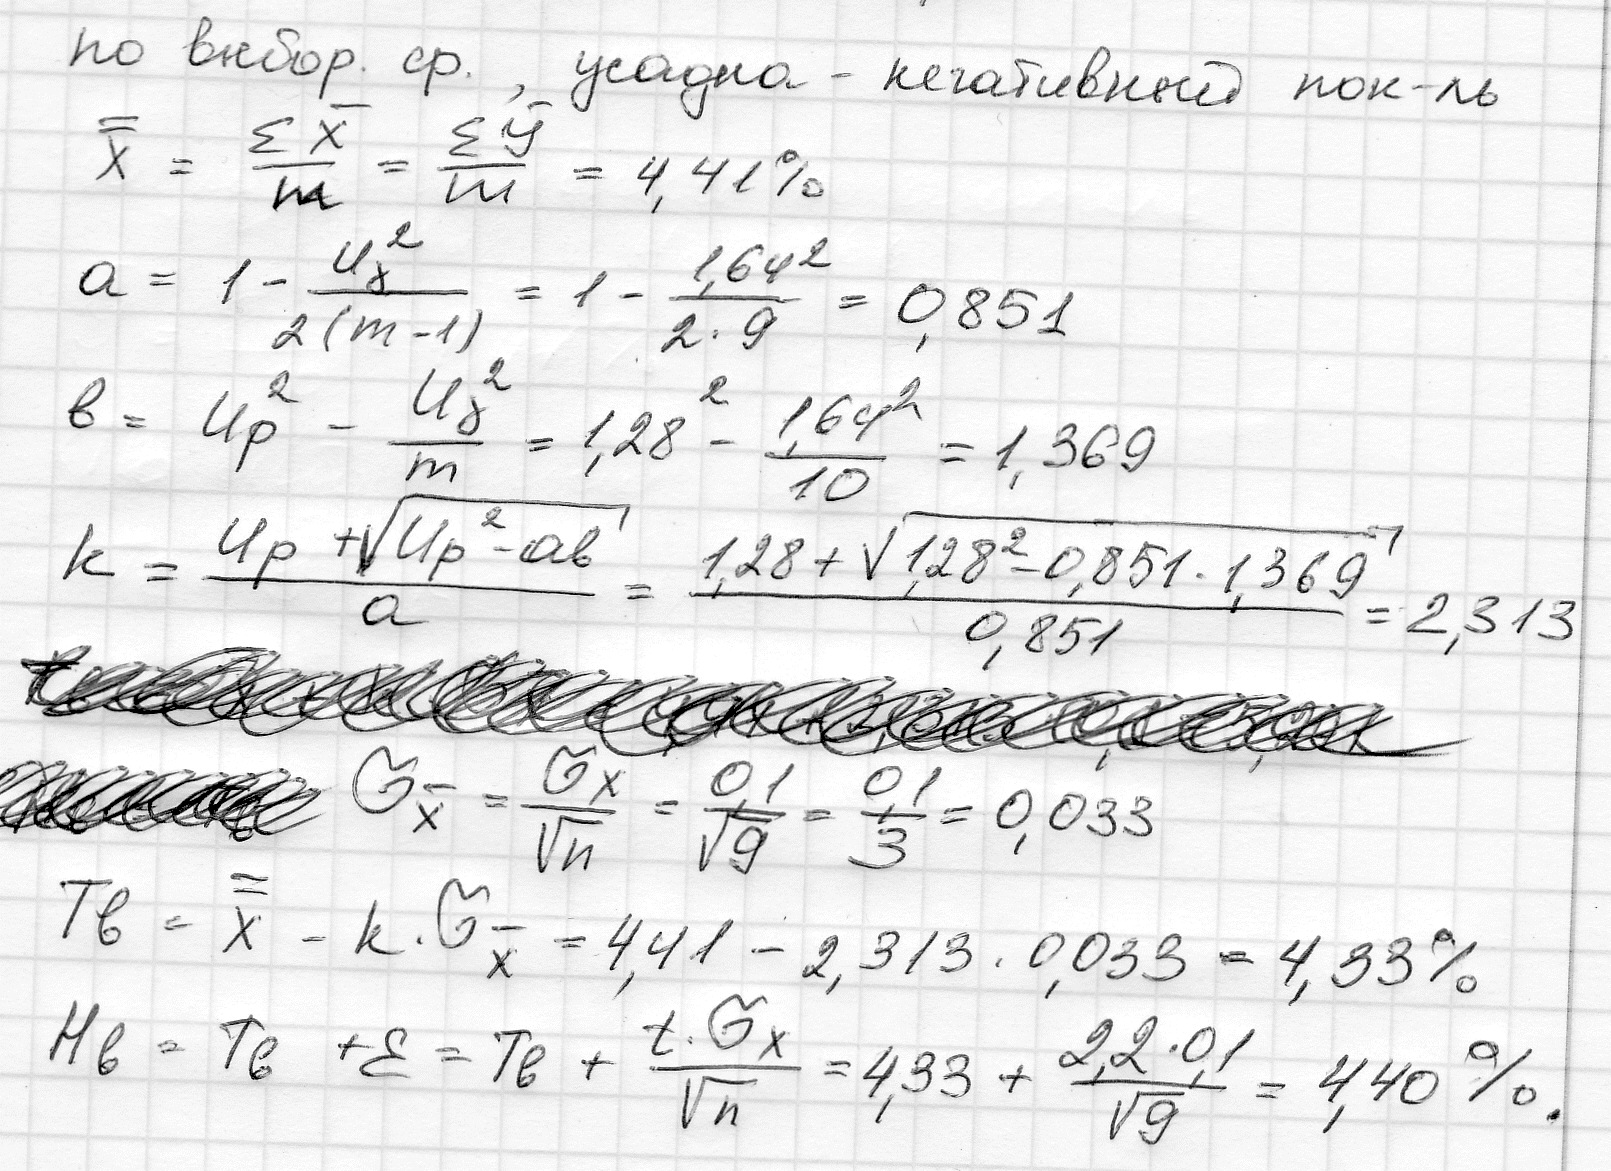 по выбор. ср., усадка - негативный пок-ль
x̿ = Σx̄/m = Σȳ/m = 4,41%
a = 1 - Uγ²/2(m-1) = 1 - 1,64²/2·9 = 0,851
в = Up² - Uγ²/m = 1,28² - 1,64²/10 = 1,369
k = Up + √(Up² - aв)/a = 1,28 + √(1,28² - 0,851·1,369)/0,851 = 2,313
σ̆x̄ = σ̆x/√n = 0,1/√9 = 0,1/3 = 0,033
Tв = x̿ - k·σ̆x̄ = 4,41 - 2,313·0,033 = 4,33%
Hв = Tв + ε = Tв + t·σ̆x/√n = 4,33 + 2,2·0,1/√9 = 4,40%.